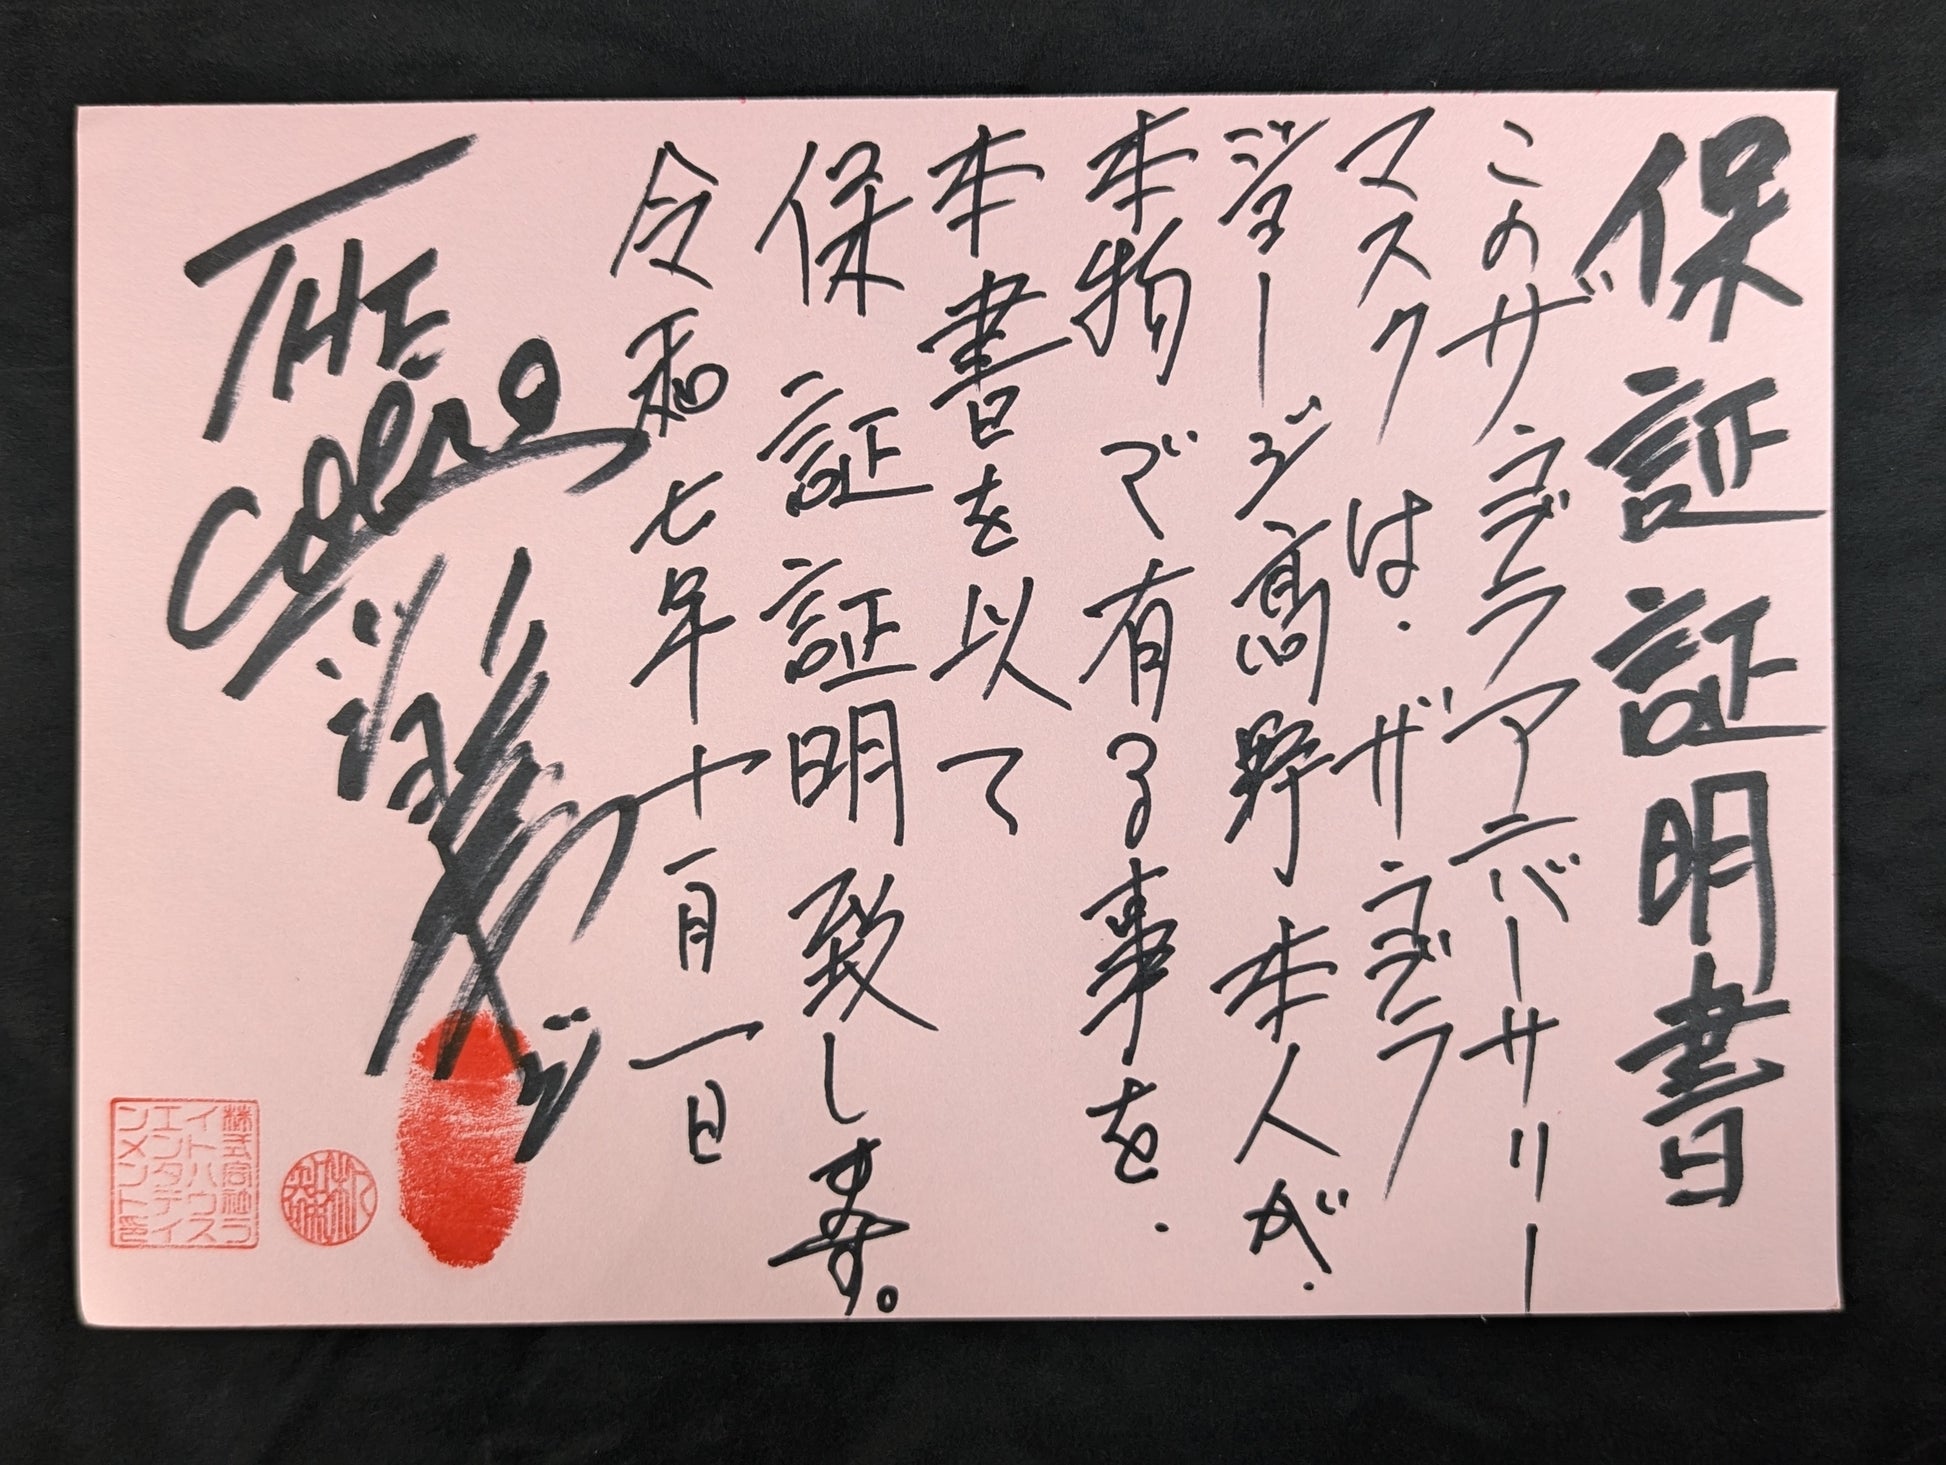 保証証明書
このザコブラアニバーサリー
マスクは.ザコブラ
ジョージ高野本人が.
本物で有る事を.
本書を以て
保証証明致します。
令和七年十一月一日
THE
CObra
ジョージ
株式会社ラ
イトハウス
エンタテイ
ンメント